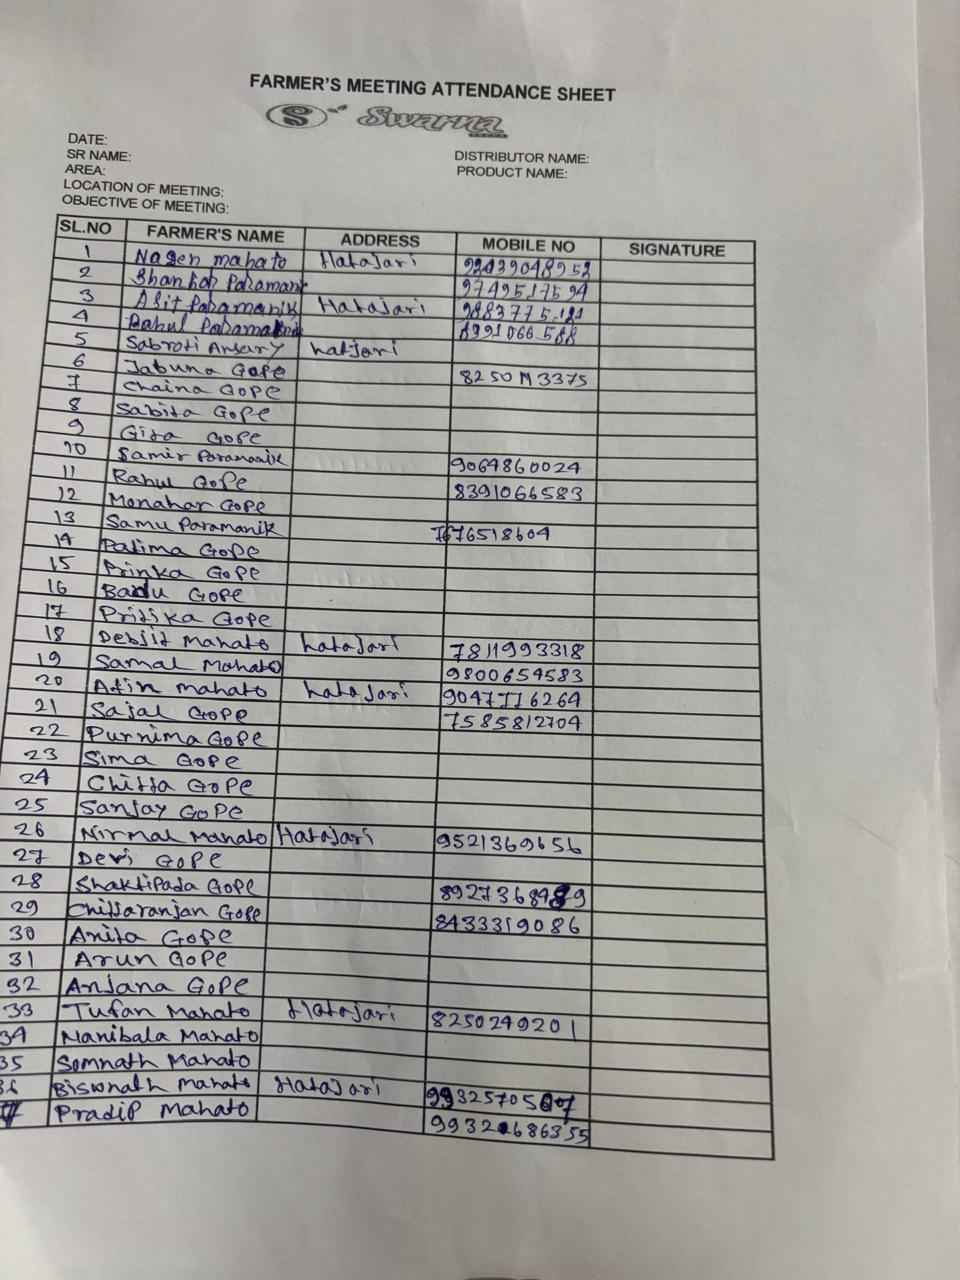 FARMER'S MEETING ATTENDANCE SHEET
S Swarna
DATE:
SR NAME:
AREA:
LOCATION OF MEETING:
OBJECTIVE OF MEETING:
DISTRIBUTOR NAME:
PRODUCT NAME:
SL.NO FARMER'S NAME ADDRESS MOBILE NO SIGNATURE
1 Nagen mahato Hatajari
2 9749517594
3 Paramanik Hatajari
4 Rahul
5 Sabroti Ansary hatjari
6 Jabuna Gope
7 Chaina Gope
8 Sabita Gope
9 Gita Gope
10 Samir Paramanik 9064860024
11 Rahul Gope 8391066583
12 Monahar Gope
13 Samu Paramanik
14 Palima Gope
15 Prinka Gope
16 Gope
17 Pritika Gope
18 Debjit Mahato hatajari 7811993318
19 Samal Mahato 9800654583
20 Atin mahato hatajari
21 Sajal Gope
22 Purnima Gope
23 Sima Gope
24 Chitta Gope
25 Sanjay Gope
26 Nirmal Mahato Hatajari 9521369656
27 Devi Gope
28 Shaktipada Gope
29 Chittaranjan Gope 8433319086
30 Anita Gope
31 Arun Gope
32 Anjana Gope
33 Tufan Mahato Hatajari 8250249201
34 Nanibala Mahato
35 Somnath Mahato
36 Biswnath Mahato Hatajari
Pradip Mahato